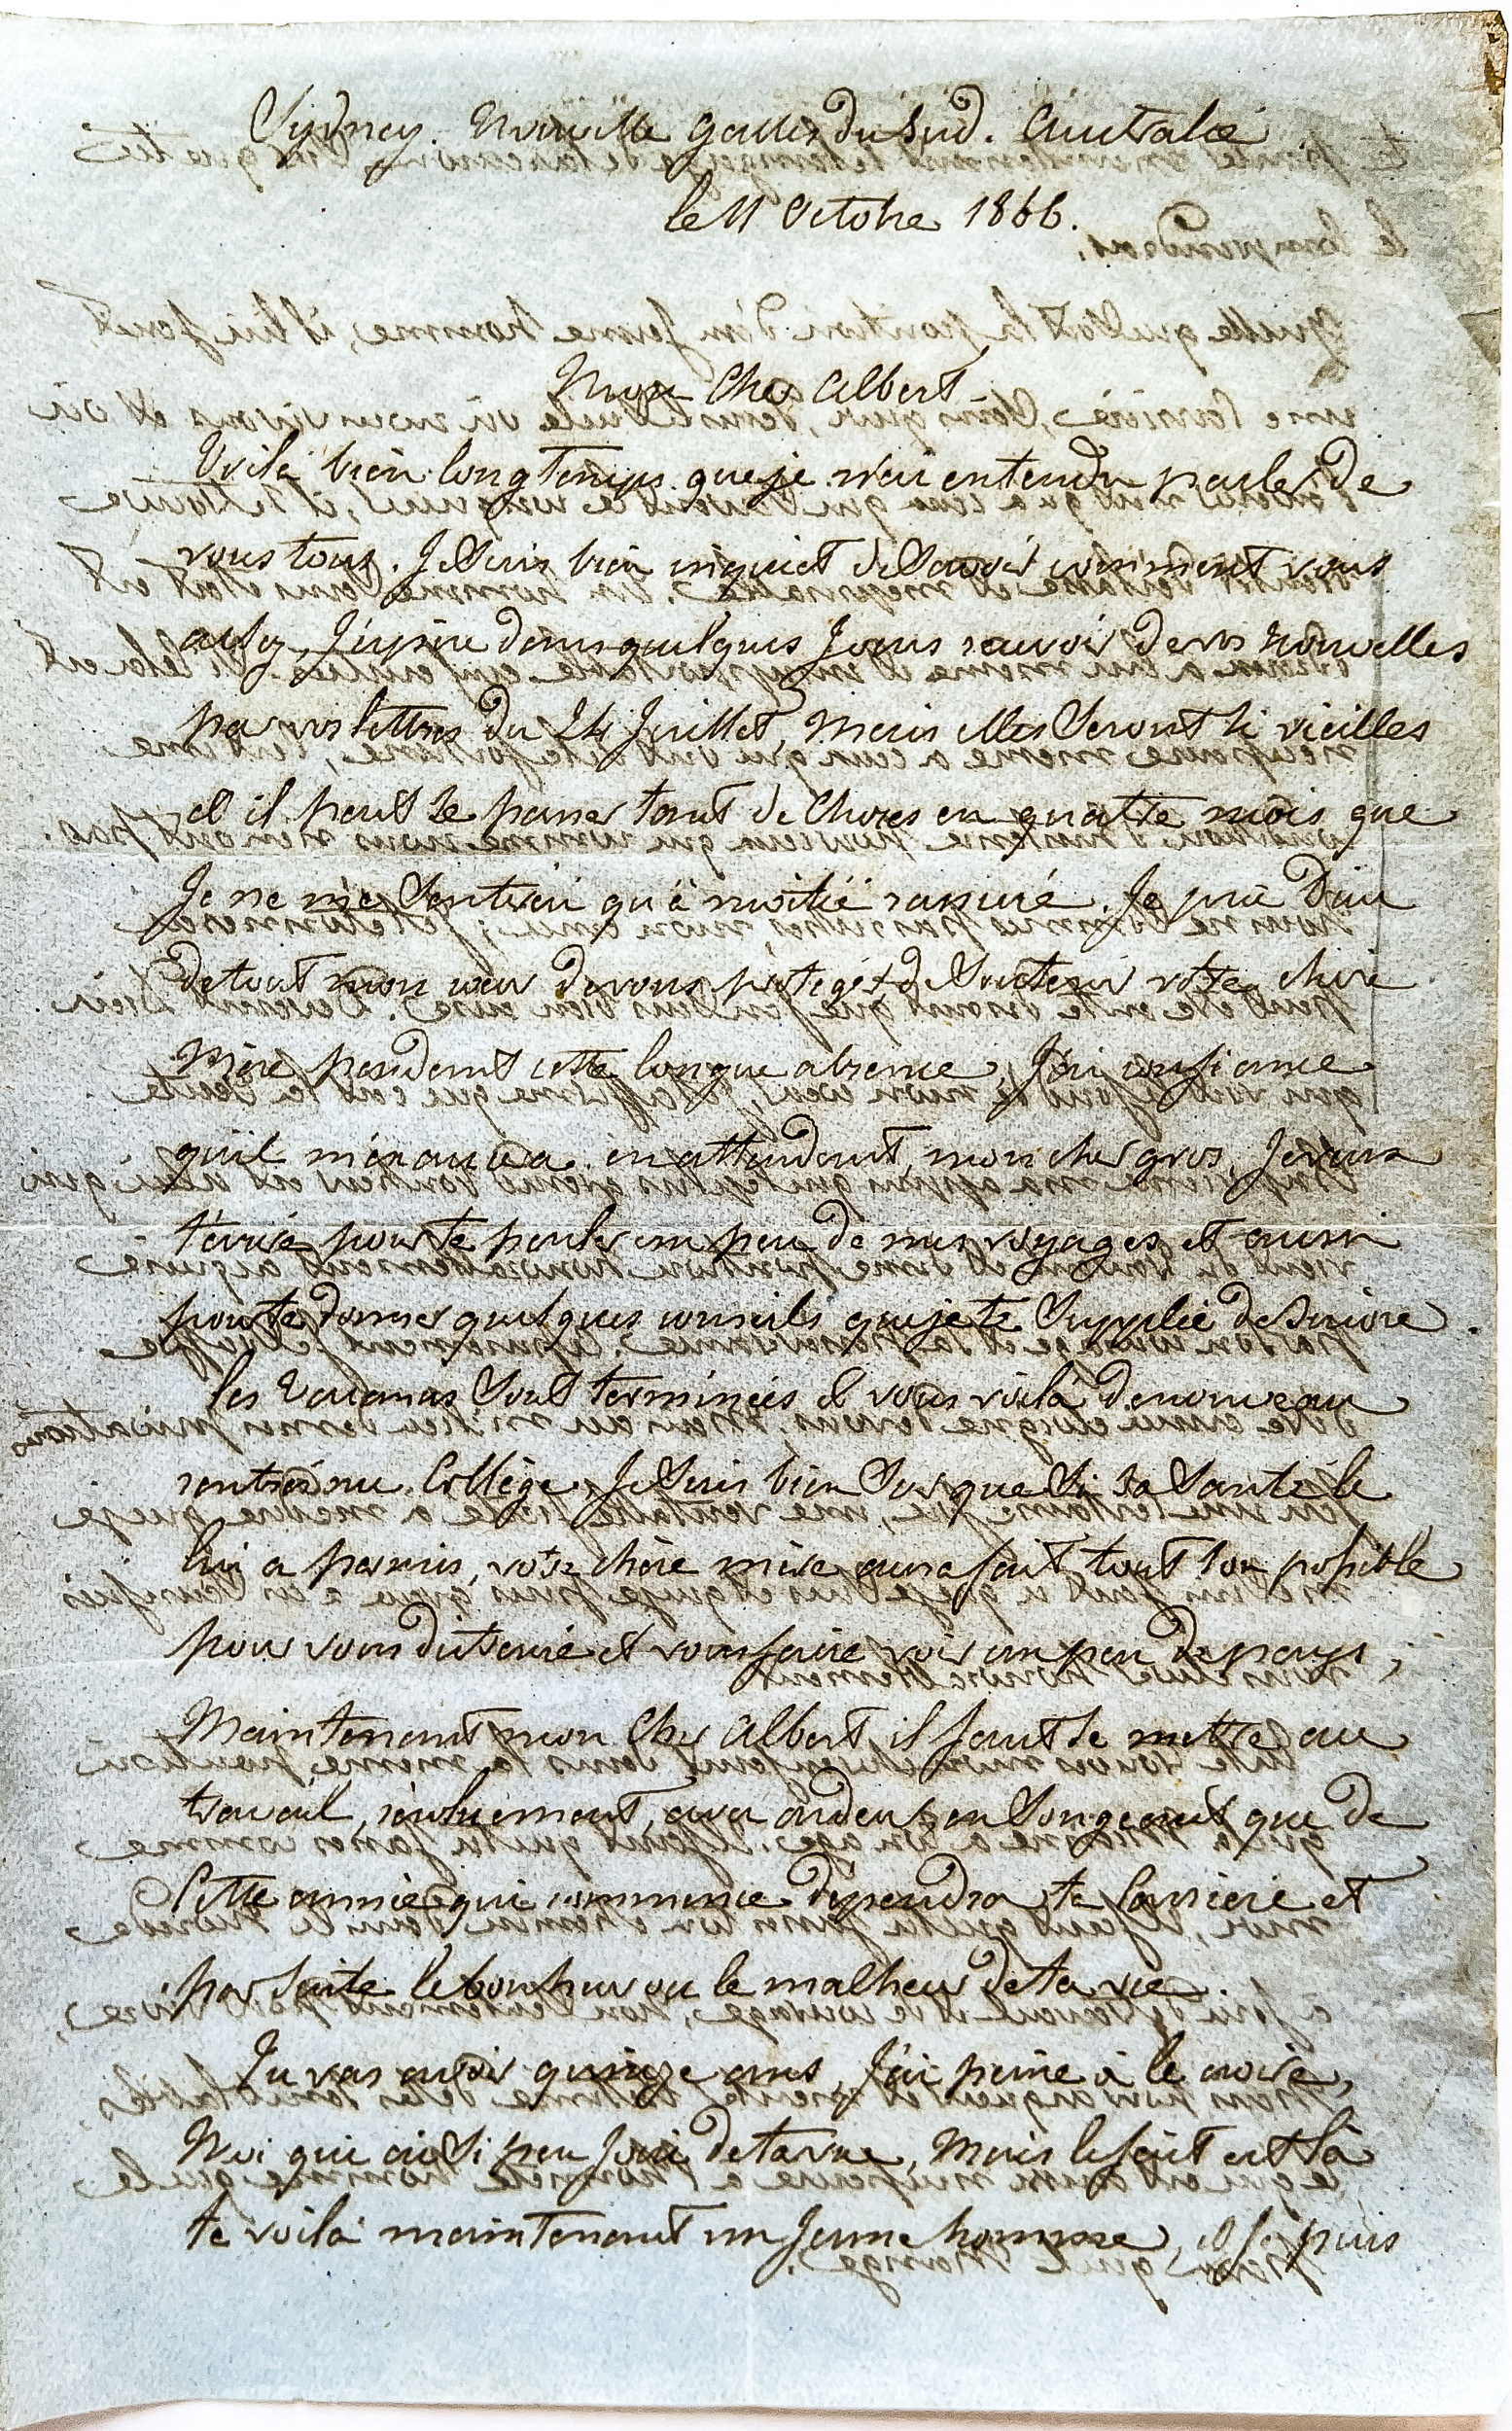 Sydney. Nouvelle Galles du Sud. Australie
le 11 Octobre 1866.
Mon Cher Albert
Voilà bien longtemps que je n'ai entendu parler de
vous tous. Je suis bien inquiet de savoir comment vous
allez, J'espère dans quelques Jours recevoir de vos nouvelles
par vos lettres du 24 Juillet, mais elles seront si vieilles
et il peut se passer tant de choses en quatre mois que
Je ne me sentirai qu'à moitié rassuré. Je prie Dieu
de tout mon cœur de vous protéger & de soutenir votre chère
Mère pendant cette longue absence, J'ai confiance
qu'il m'exaucera. en attendant, mon cher gros, Je veux
t'écrire pour te parler un peu de mes voyages et aussi
pour te donner quelques conseils que je te supplie de suivre.
les vacances sont terminées et vous voilà de nouveau
rentrés au Collège, Je suis bien sur que si sa santé le
lui a permis, votre chère mère aura fait tout son possible
pour vous distraire et vous faire voir un peu de pays,
Maintenant mon Cher Albert il faut se mettre au
travail, résolument, avec ardeur, en songeant que de
Cette année qui commence dépendra ta Carrière et
par suite le bonheur ou le malheur de ta vie.
Tu vas avoir quinze ans, J'ai peine à le croire,
Moi qui ai si peu Joui de ta vue, mais le fait est là
te voilà maintenant un Jeune homme, et Je puis